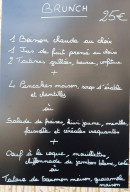 BRUNCH
25€
1 Boisson chaude au choix
1 Jus de fruit pressé au choix
2 Tartines grillées, beurre, confiture
+
4 Pancakes maison, sirop d'érable
et chantilly
ou
Salade de fraise, kiwi jaune, menthe,
faisselle et céréales croquantes
+
Oeuf à la coque, mouillettes,
chiffonnade de jambon blanc,
ou
Tartare de saumon maison, guacamole
maison